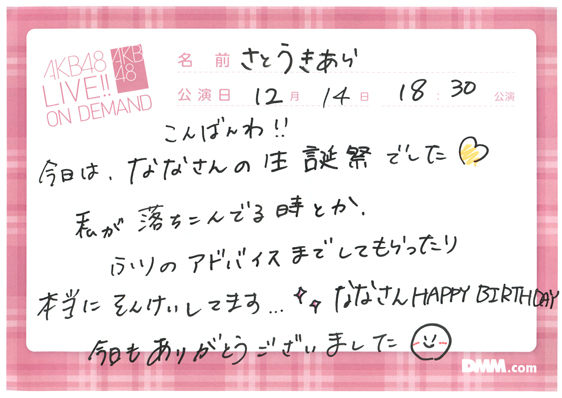 AKB48
LIVE!!
ON DEMAND
AKB
48
名前 さとうきあら
公演日 12月 14日 18:30 公演
こんばんわ!!
今日は、ななさんの生誕祭でした♡
私が落ちこんでる時とか、
ふりのアドバイスまでしてもらったり
本当にそんけいしてます... ななさんHAPPY BIRTHDAY
今日もありがとうございました
DMM.com